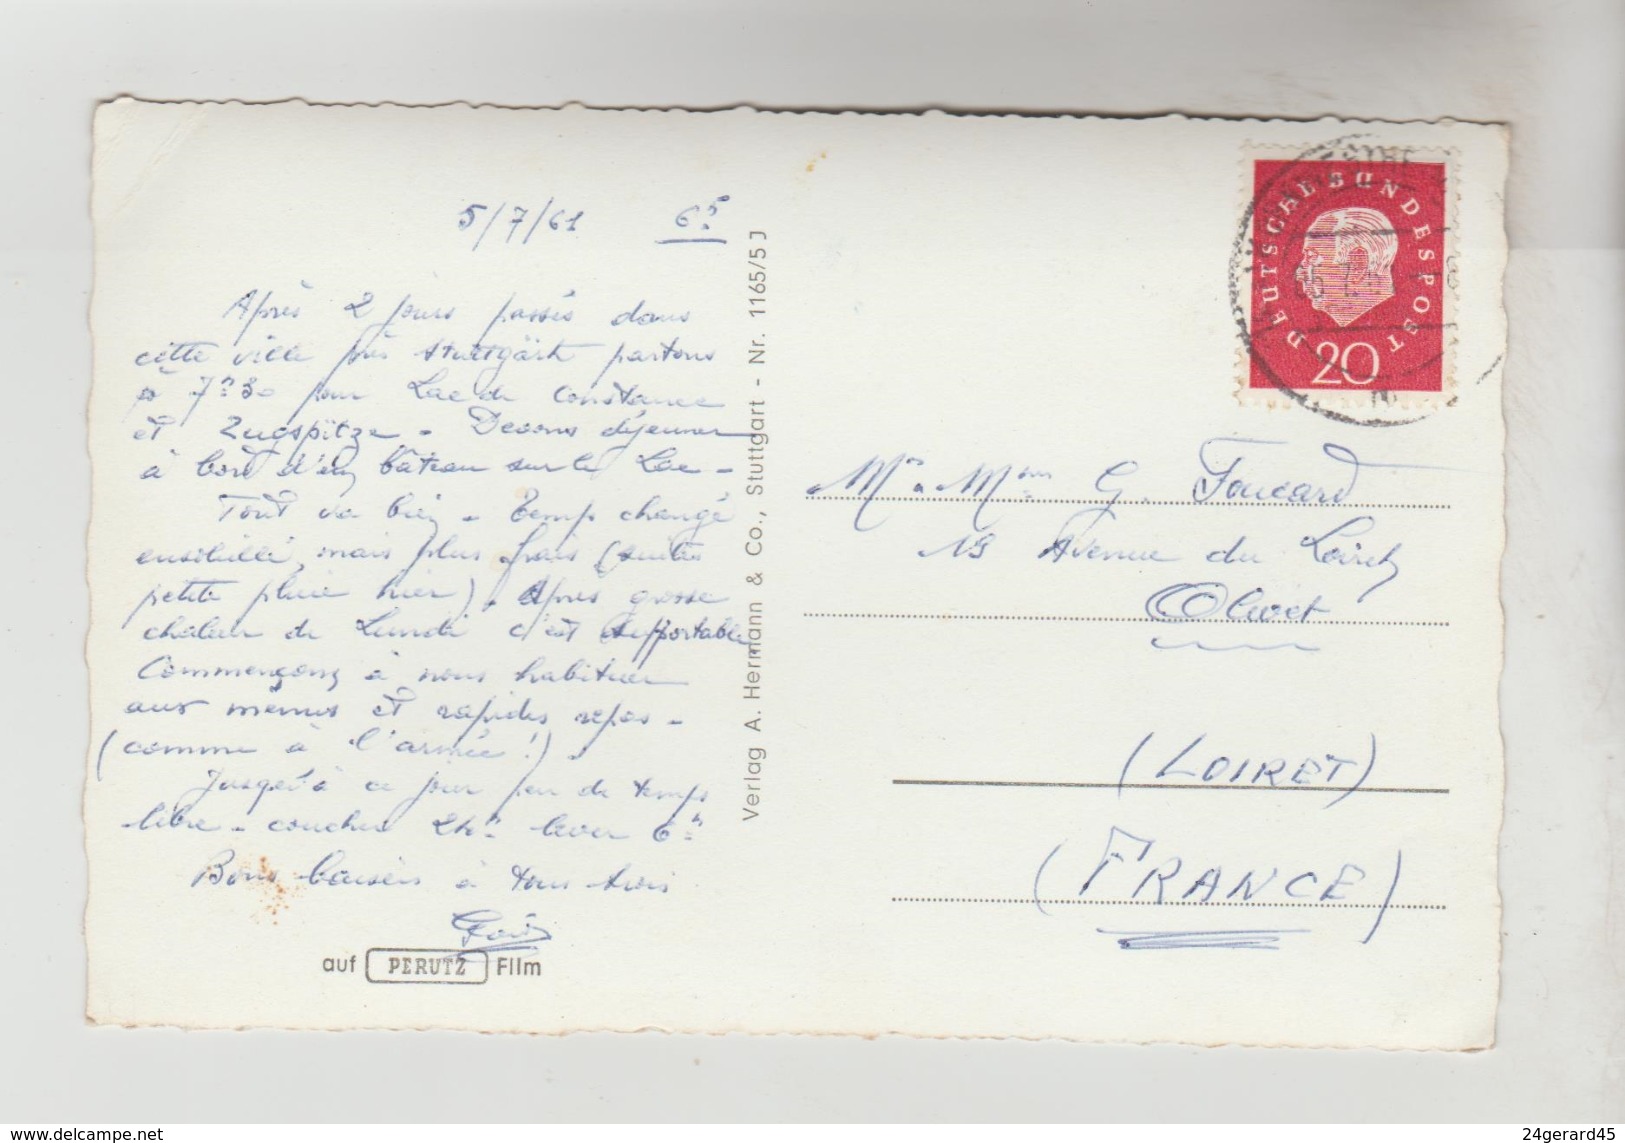 5/7/61 6h5
Après 2 jours passés dans
cette ville près Stuttgärt partons
à 7h30 pour Lac de Constance
et Zugspitze - Devons déjeuner
à bord d'un bâteau sur le Lac -
Tout va bien - Temps changé
ensoleillé, mais plus frais (suite
petite pluie hier). Après grosse
chaleur de Lundi c'est supportable
Commençons à nous habituer
aux menus et rapides repos -
(comme à l'armée!).
Jusqu'à ce jour peu de temps
libre - coucher 24h lever 6h
Bons baisers à tous trois
auf PERUTZ Film
Verlag A. Hermann & Co., Stuttgart - Nr. 1165/5 J
DEUTSCHE BUNDESPOST
20
Mr & Mme G. Foucard
19 Avenue du Loiret
Olivet
(LOIRET)
(FRANCE)
delcampe.net
24gerard45